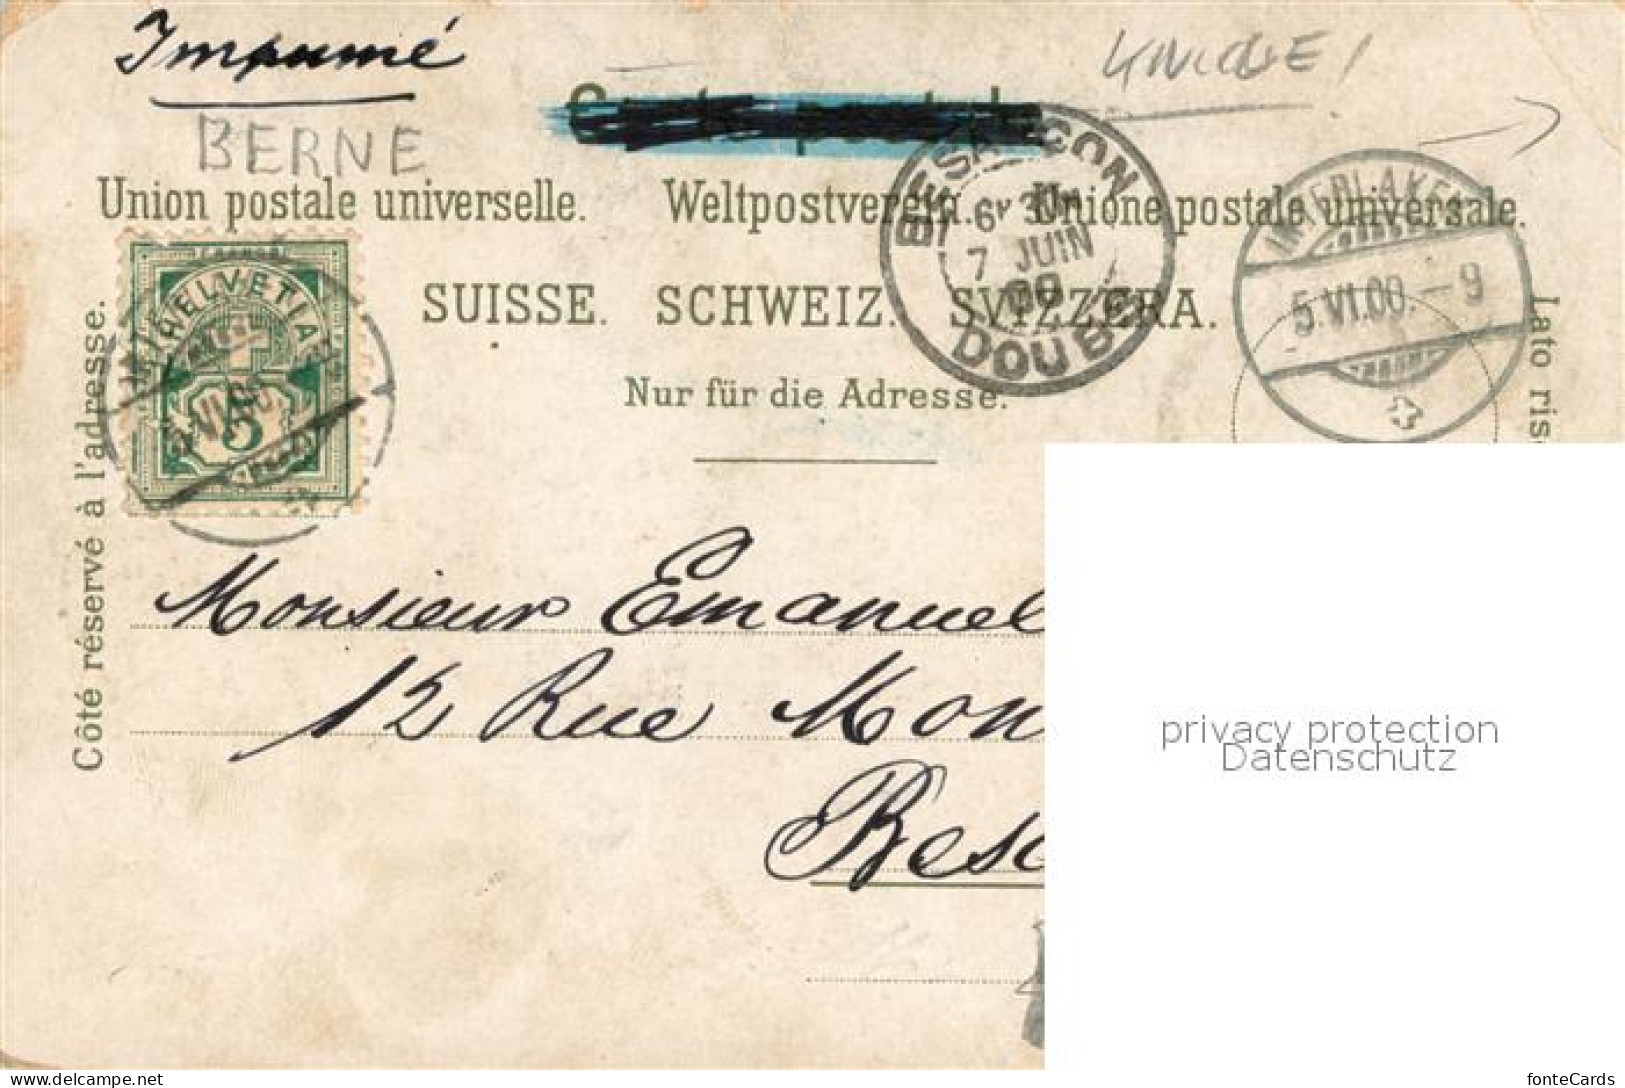 Imprimé
BERNE
Union postale universelle. Weltpostverein. Unione postale universale.
SUISSE. SCHWEIZ. SVIZZERA.
Nur für die Adresse.
Côté réservé à l'adresse.
Lato ris
HELVETIA
5
BESANÇON
7 JUIN
00
DOUBS
INTERLAKEN
5.VI.00.-9
Monsieur Emanuel
12 Rue Mon
Besa
privacy protection
Datenschutz
delcampe.net
fonteCards